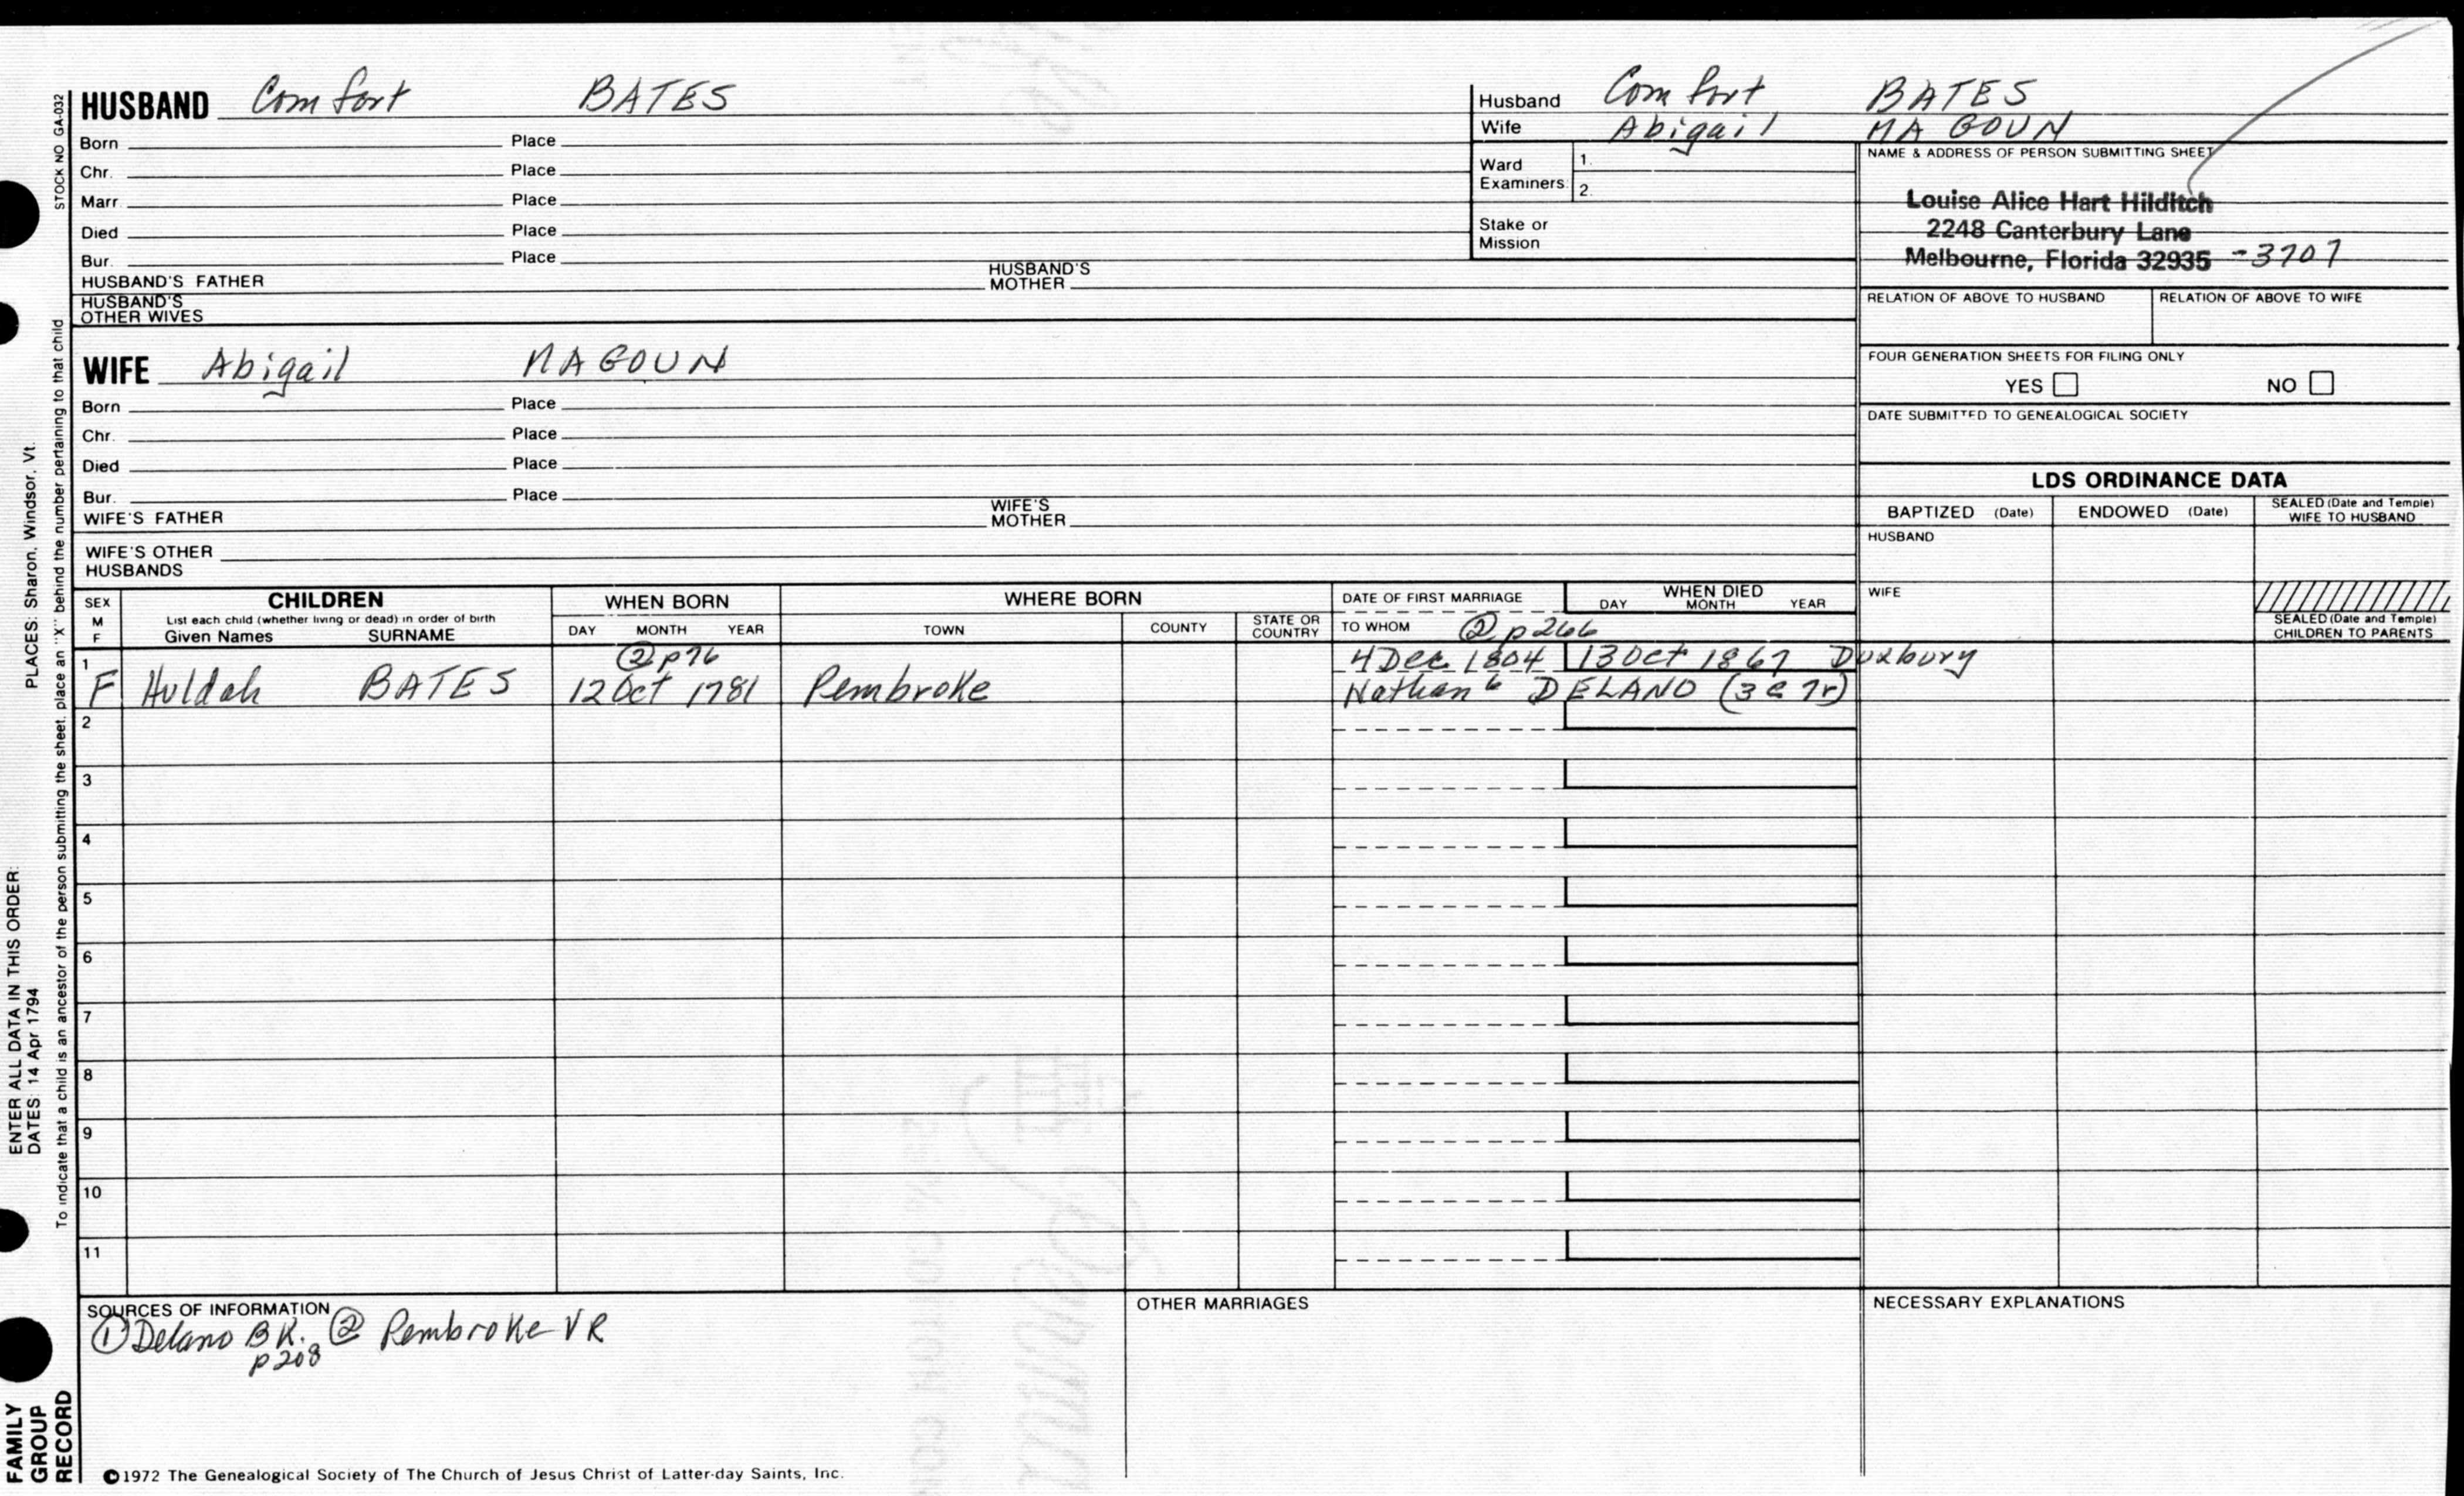 HUSBAND Comfort BATES
Born Place
Chr. Place
Marr. Place
Died Place
Bur. Place
HUSBAND'S FATHER HUSBAND'S MOTHER
HUSBAND'S OTHER WIVES
WIFE Abigail MAGOUN
Born Place
Chr. Place
Died Place
Bur. Place
WIFE'S FATHER WIFE'S MOTHER
WIFE'S OTHER HUSBANDS
Husband Comfort BATES
Wife Abigail MAGOUN
Ward Examiners: 1.
2.
Stake or Mission
NAME & ADDRESS OF PERSON SUBMITTING SHEET
Louise Alice Hart Hilditch
2248 Canterbury Lane
Melbourne, Florida 32935 -3707
RELATION OF ABOVE TO HUSBAND RELATION OF ABOVE TO WIFE
FOUR GENERATION SHEETS FOR FILING ONLY
YES NO
DATE SUBMITTED TO GENEALOGICAL SOCIETY
LDS ORDINANCE DATA
BAPTIZED (Date) ENDOWED (Date) SEALED (Date and Temple) WIFE TO HUSBAND
HUSBAND
WIFE
SEALED (Date and Temple) CHILDREN TO PARENTS
SEX M F
CHILDREN
List each child (whether living or dead) in order of birth
Given Names SURNAME
WHEN BORN
DAY MONTH YEAR
WHERE BORN
TOWN COUNTY STATE OR COUNTRY
DATE OF FIRST MARRIAGE
TO WHOM
WHEN DIED
DAY MONTH YEAR
② p266
② p76
4 Dec 1804 13 Oct 1867 Duxbury
1 F Huldah BATES 12 Oct 1781 Pembroke Nathan⁶ DELANO (3 e 7r)
2
3
4
5
6
7
8
9
10
11
SOURCES OF INFORMATION
① Delano BK. ② Pembroke VR
p208
OTHER MARRIAGES
NECESSARY EXPLANATIONS
©1972 The Genealogical Society of The Church of Jesus Christ of Latter-day Saints, Inc.
STOCK NO GA-032
To indicate that a child is an ancestor of the person submitting the sheet, place an "X" behind the number pertaining to that child
PLACES: Sharon, Windsor, Vt.
ENTER ALL DATA IN THIS ORDER:
DATES: 14 Apr 1794
FAMILY
GROUP
RECORD